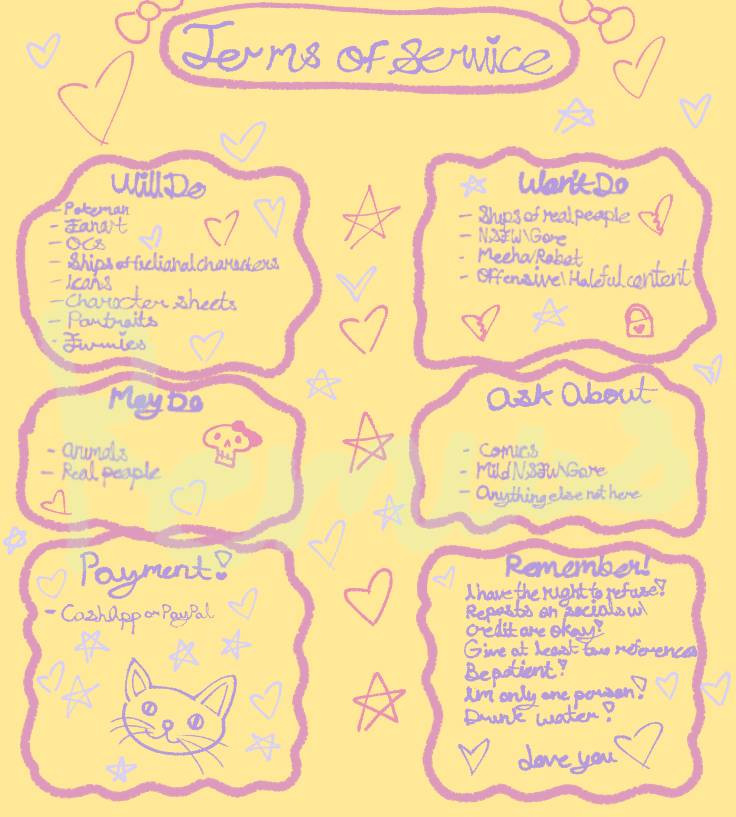 Terms of Service
Will Do
- Pokemon
- Fanart
- OCs
- Ships of fictional characters
- Icons
- Character sheets
- Portraits
- Furries
Won't Do
- Ships of real people
- NSFW\Gore
- Mecha/Robot
- Offensive\Hateful content
May Do
- Animals
- Real people
Ask About
- Comics
- Mild NSFW\Gore
- Anything else not here
Payment!
- CashApp or PayPal
Remember!
I have the right to refuse!
Reposts on socials w\
credit are okay!
Give at least two references
Be patient!
I'm only one person!
Drink water!
Love you